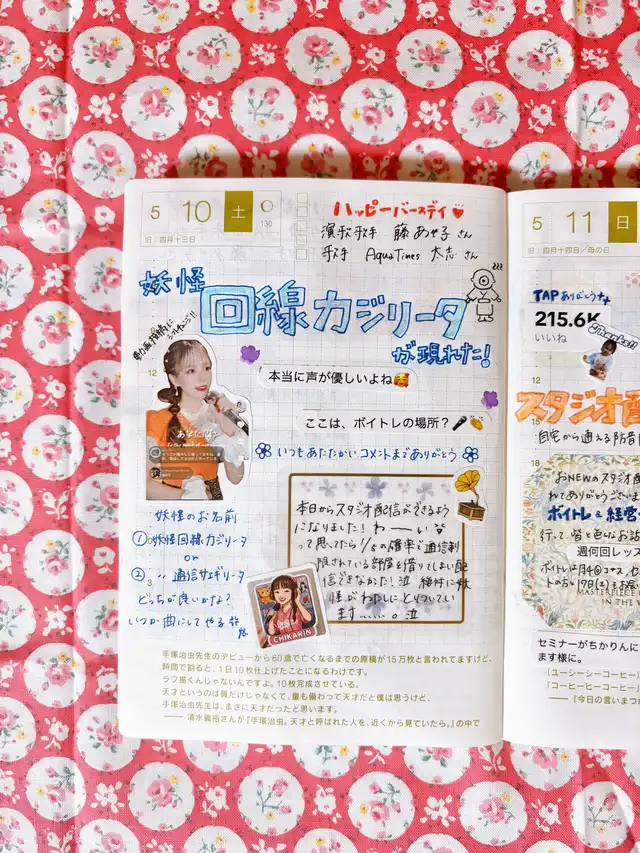 5 10 土
130
旧/四月十三日
ハッピーバースデイ
演歌歌手 藤 あや子 さん
歌手 AquaTimes 太志 さん
妖怪
回線カジリータ
が現れた!
zzz
本当に声が優しいよね🥰
ここは、ボイトレの場所?🎤👏
いつもあたたかいコメントまでありがとう
あなたに
妖怪のお名前
①妖怪回線カジリータ
or
② 〃 通信サギリータ
どっちが良いかな?
いつか曲にしてやる
本日からスタジオ配信ができるよう
になりました!わーーい
って思ってたら1/5の確率で通信制
限されている部屋を借りてしまい配
信できなかた!泣 絶対に妖
怪がわたしにとりついてい
ます……。泣
CHIKARIN
手塚治虫先生のデビューから60歳で亡くなるまでの原稿が15万枚と言われてますけど、
時間で割ると、1日10枚仕上げたことになるわけです。
ラフ描くんじゃないんですよ。10枚完成させている。
天才というのは質だけじゃなくて、量も備わって天才だと僕は思うけど、
手塚治虫先生は、まさに天才だったと思います。
―― 清水義裕さんが『手塚治虫。天才と呼ばれた人を、近くから見ていたら。』の中で
5 11 日
旧/四月十四日/母の日
TAPありがとう++
215.6K
いいね
Thanks!!
12
スタジオ
自宅から通える防音
18
お NEWのスタジオ配
れてありがとうございま
ボイトレ&経営
行って皆と色んなお話
週何回レッス
ボイトレは月4回コース セ
MASTERPIECE
IN THE
セミナーがちかりんに
ます様に。
(ユーシーシーコーヒー)
「コーヒーヒーコーヒー
――『今日の言いまつが